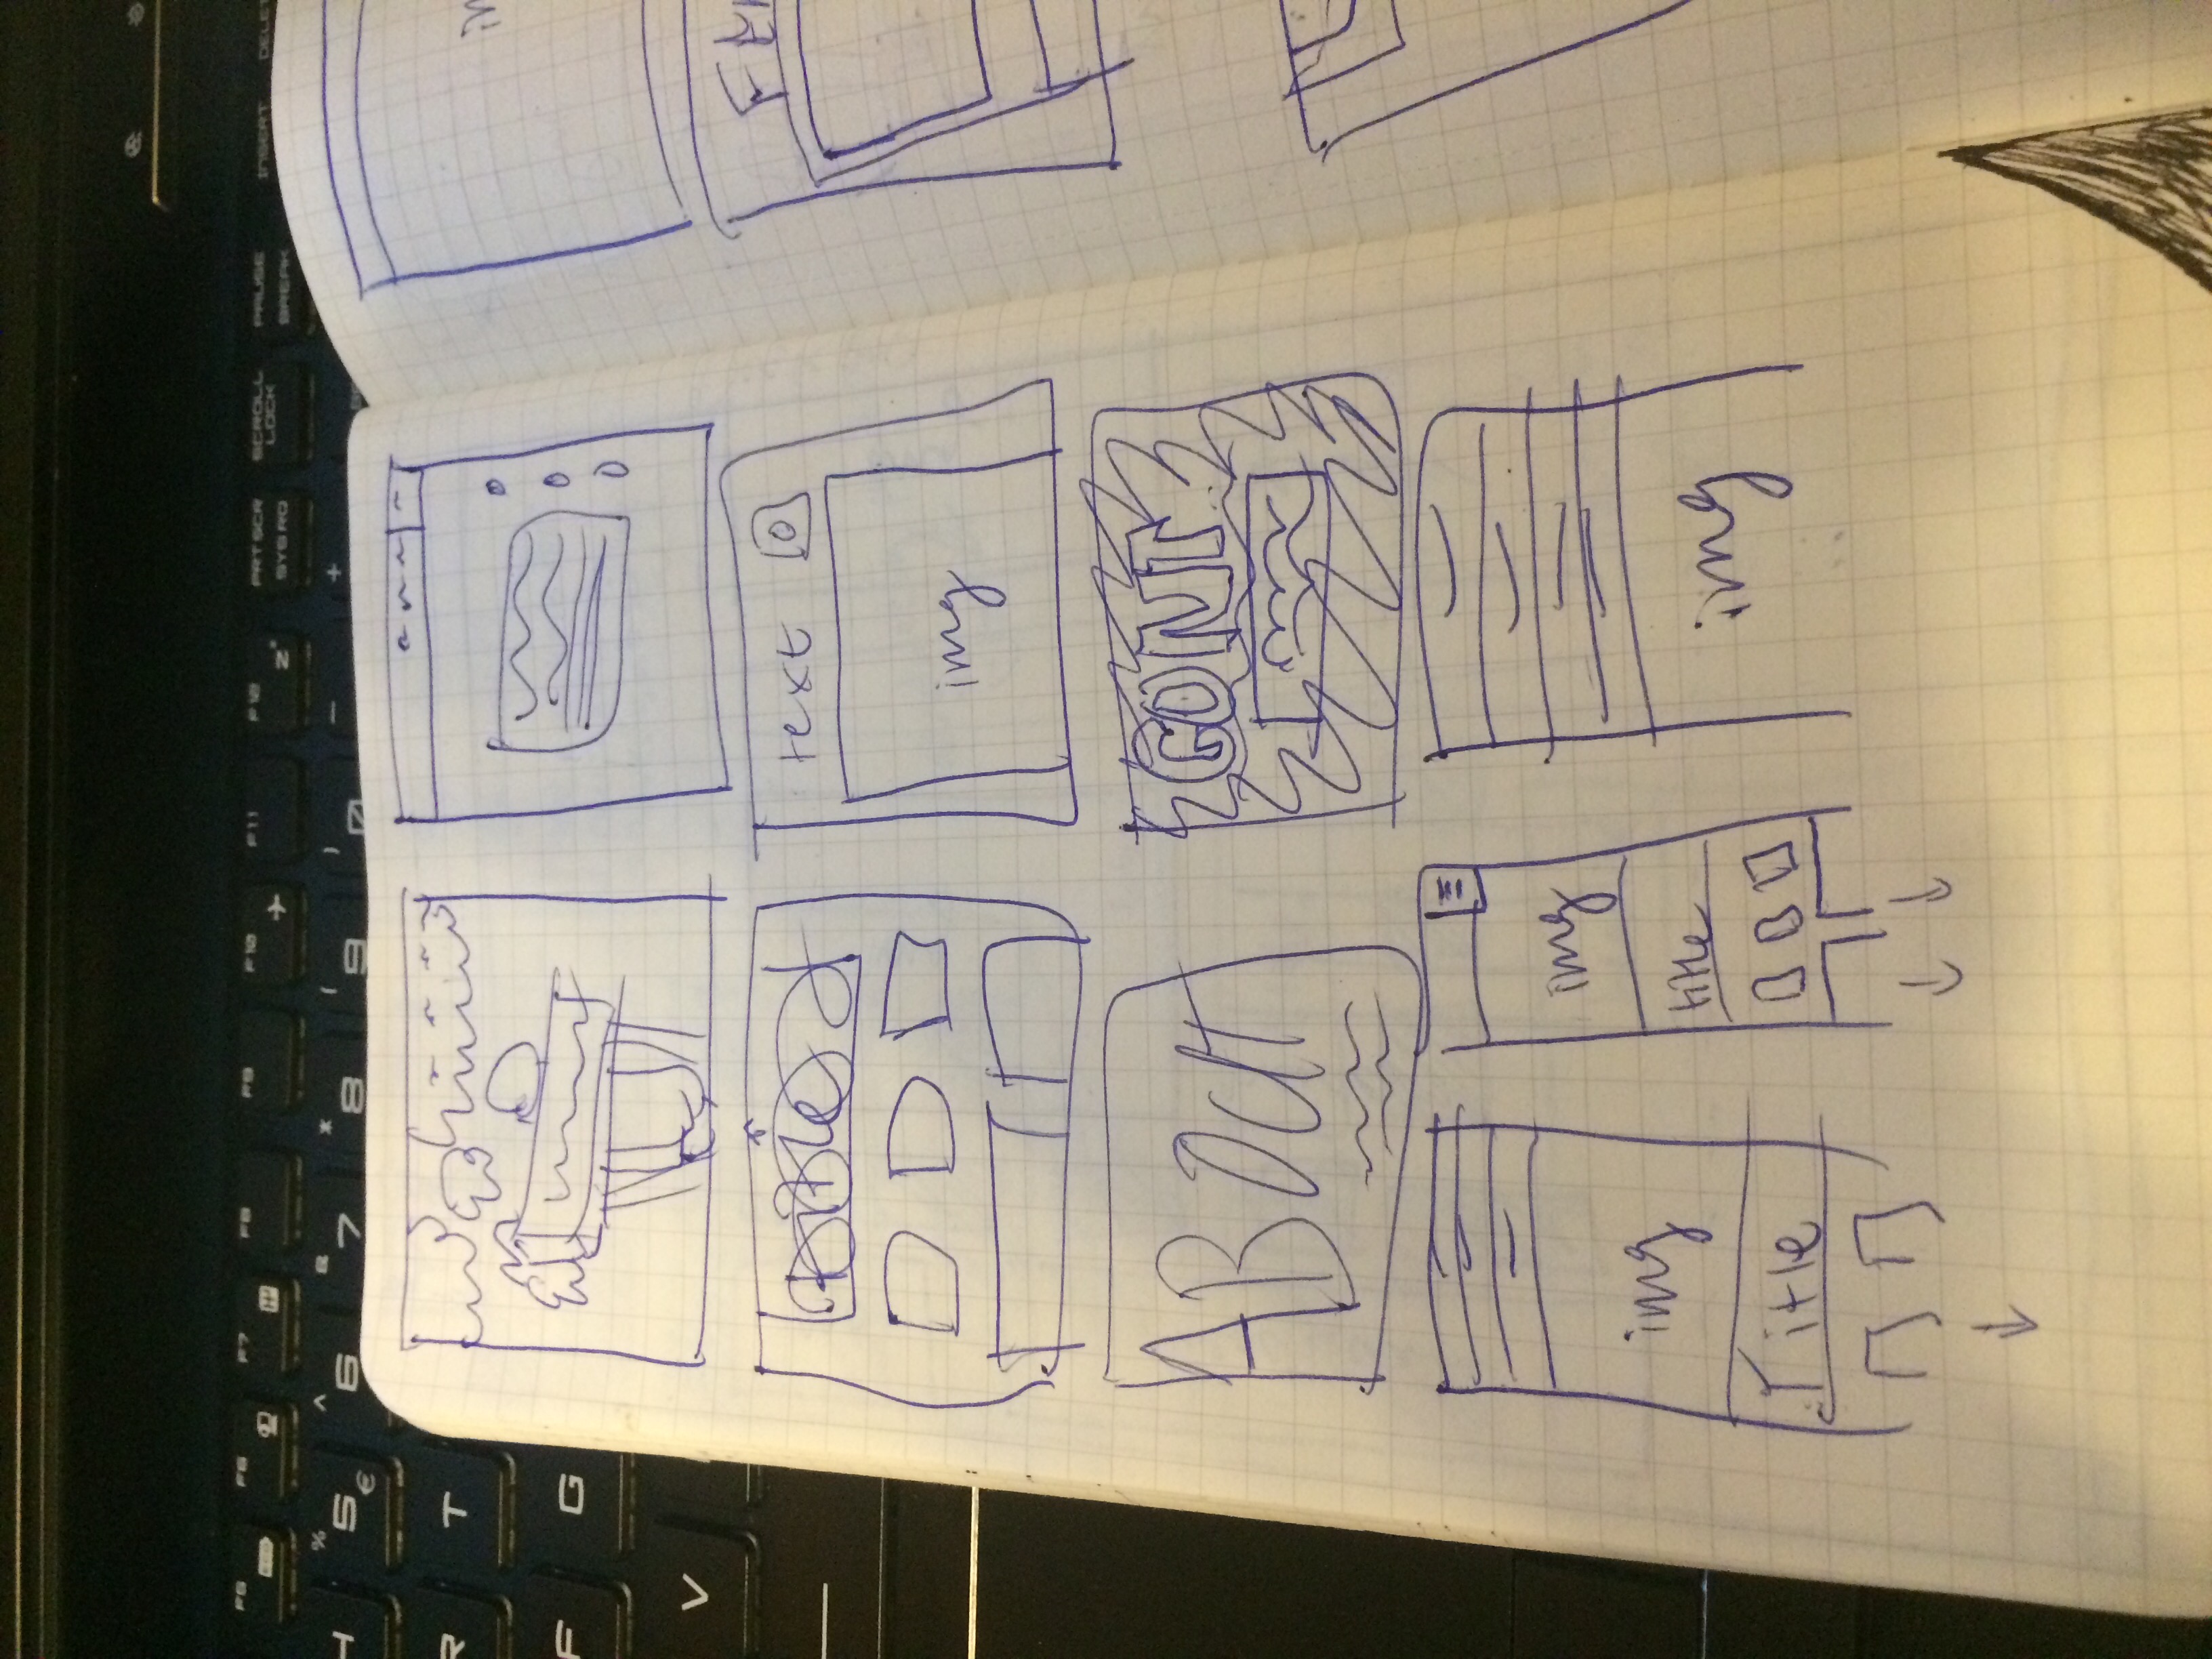 F5 F6 F7 F8 F9 F10 F11 F12 PRTSCR SYSRQ SCROLL LOCK PAUSE BREAK INSERT
ECO Z
% 5 € ^ 6 & 7 * 8 ( 9 ) 0 - +
R T
F G
V
title
text
img
ABOUT
CONT
img
Title
img
title
img